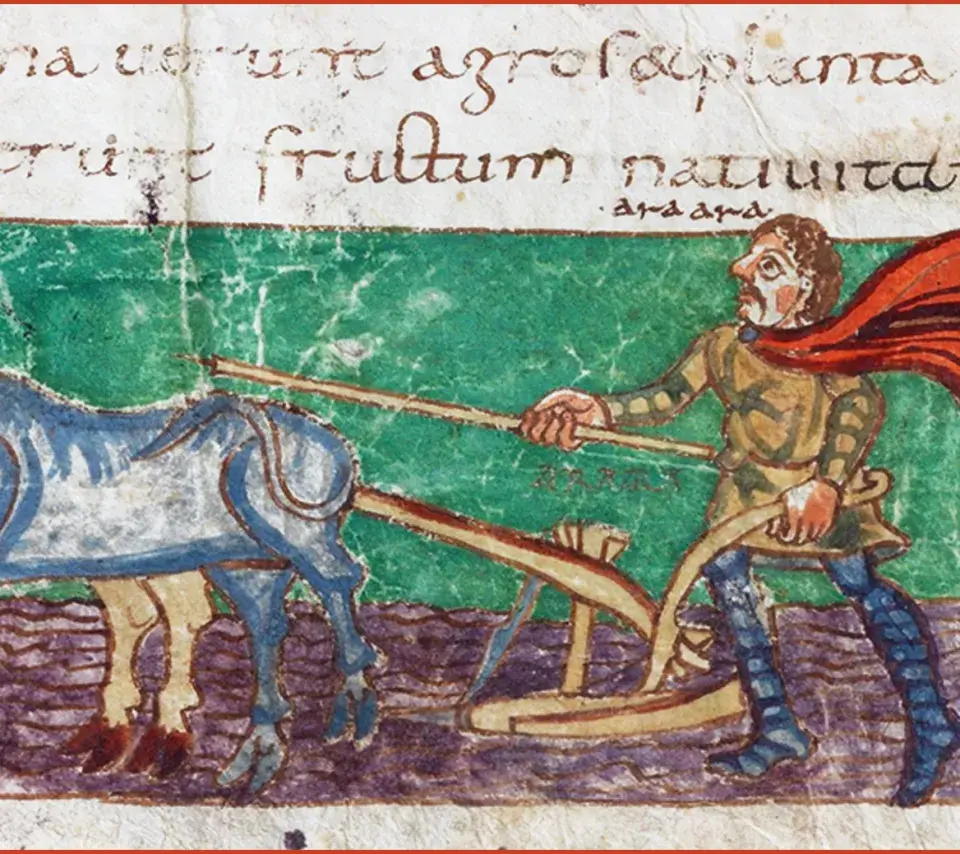 na uerunt agros&planta
erunt fructum natiuitat
ara ara